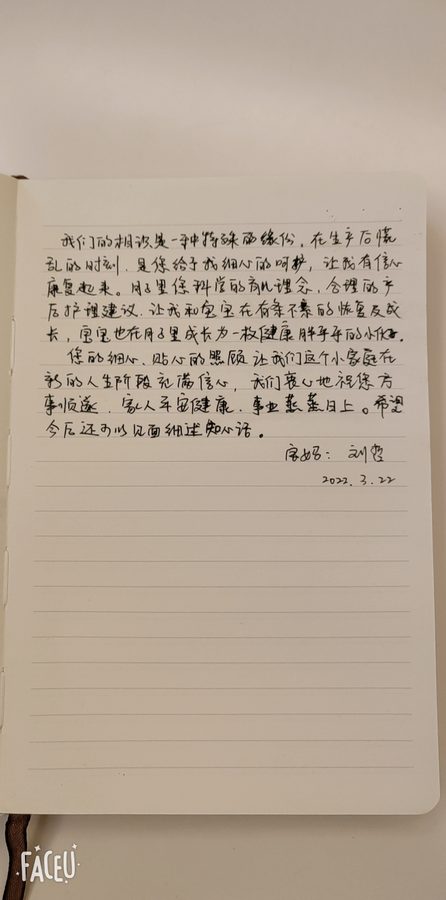 我们的相识是一种特殊的缘份，在生产后慌
乱的时刻，是您给予我细心的呵护，让我有信心
康复起来。月子里您科学的育儿理念，合理的产
后护理建议，让我和宝宝在有条不紊的恢复及成
长，宝宝也在月子里成长为一枚健康胖乎乎的小伙子。
您的细心、贴心的照顾让我们这个小家庭在
新的人生阶段充满信心，我们衷心地祝您万
事顺遂，家人平安健康，事业蒸蒸日上。希望
今后还可以见面细述知心话。
宝妈：刘哲
2022.3.22
FACEU